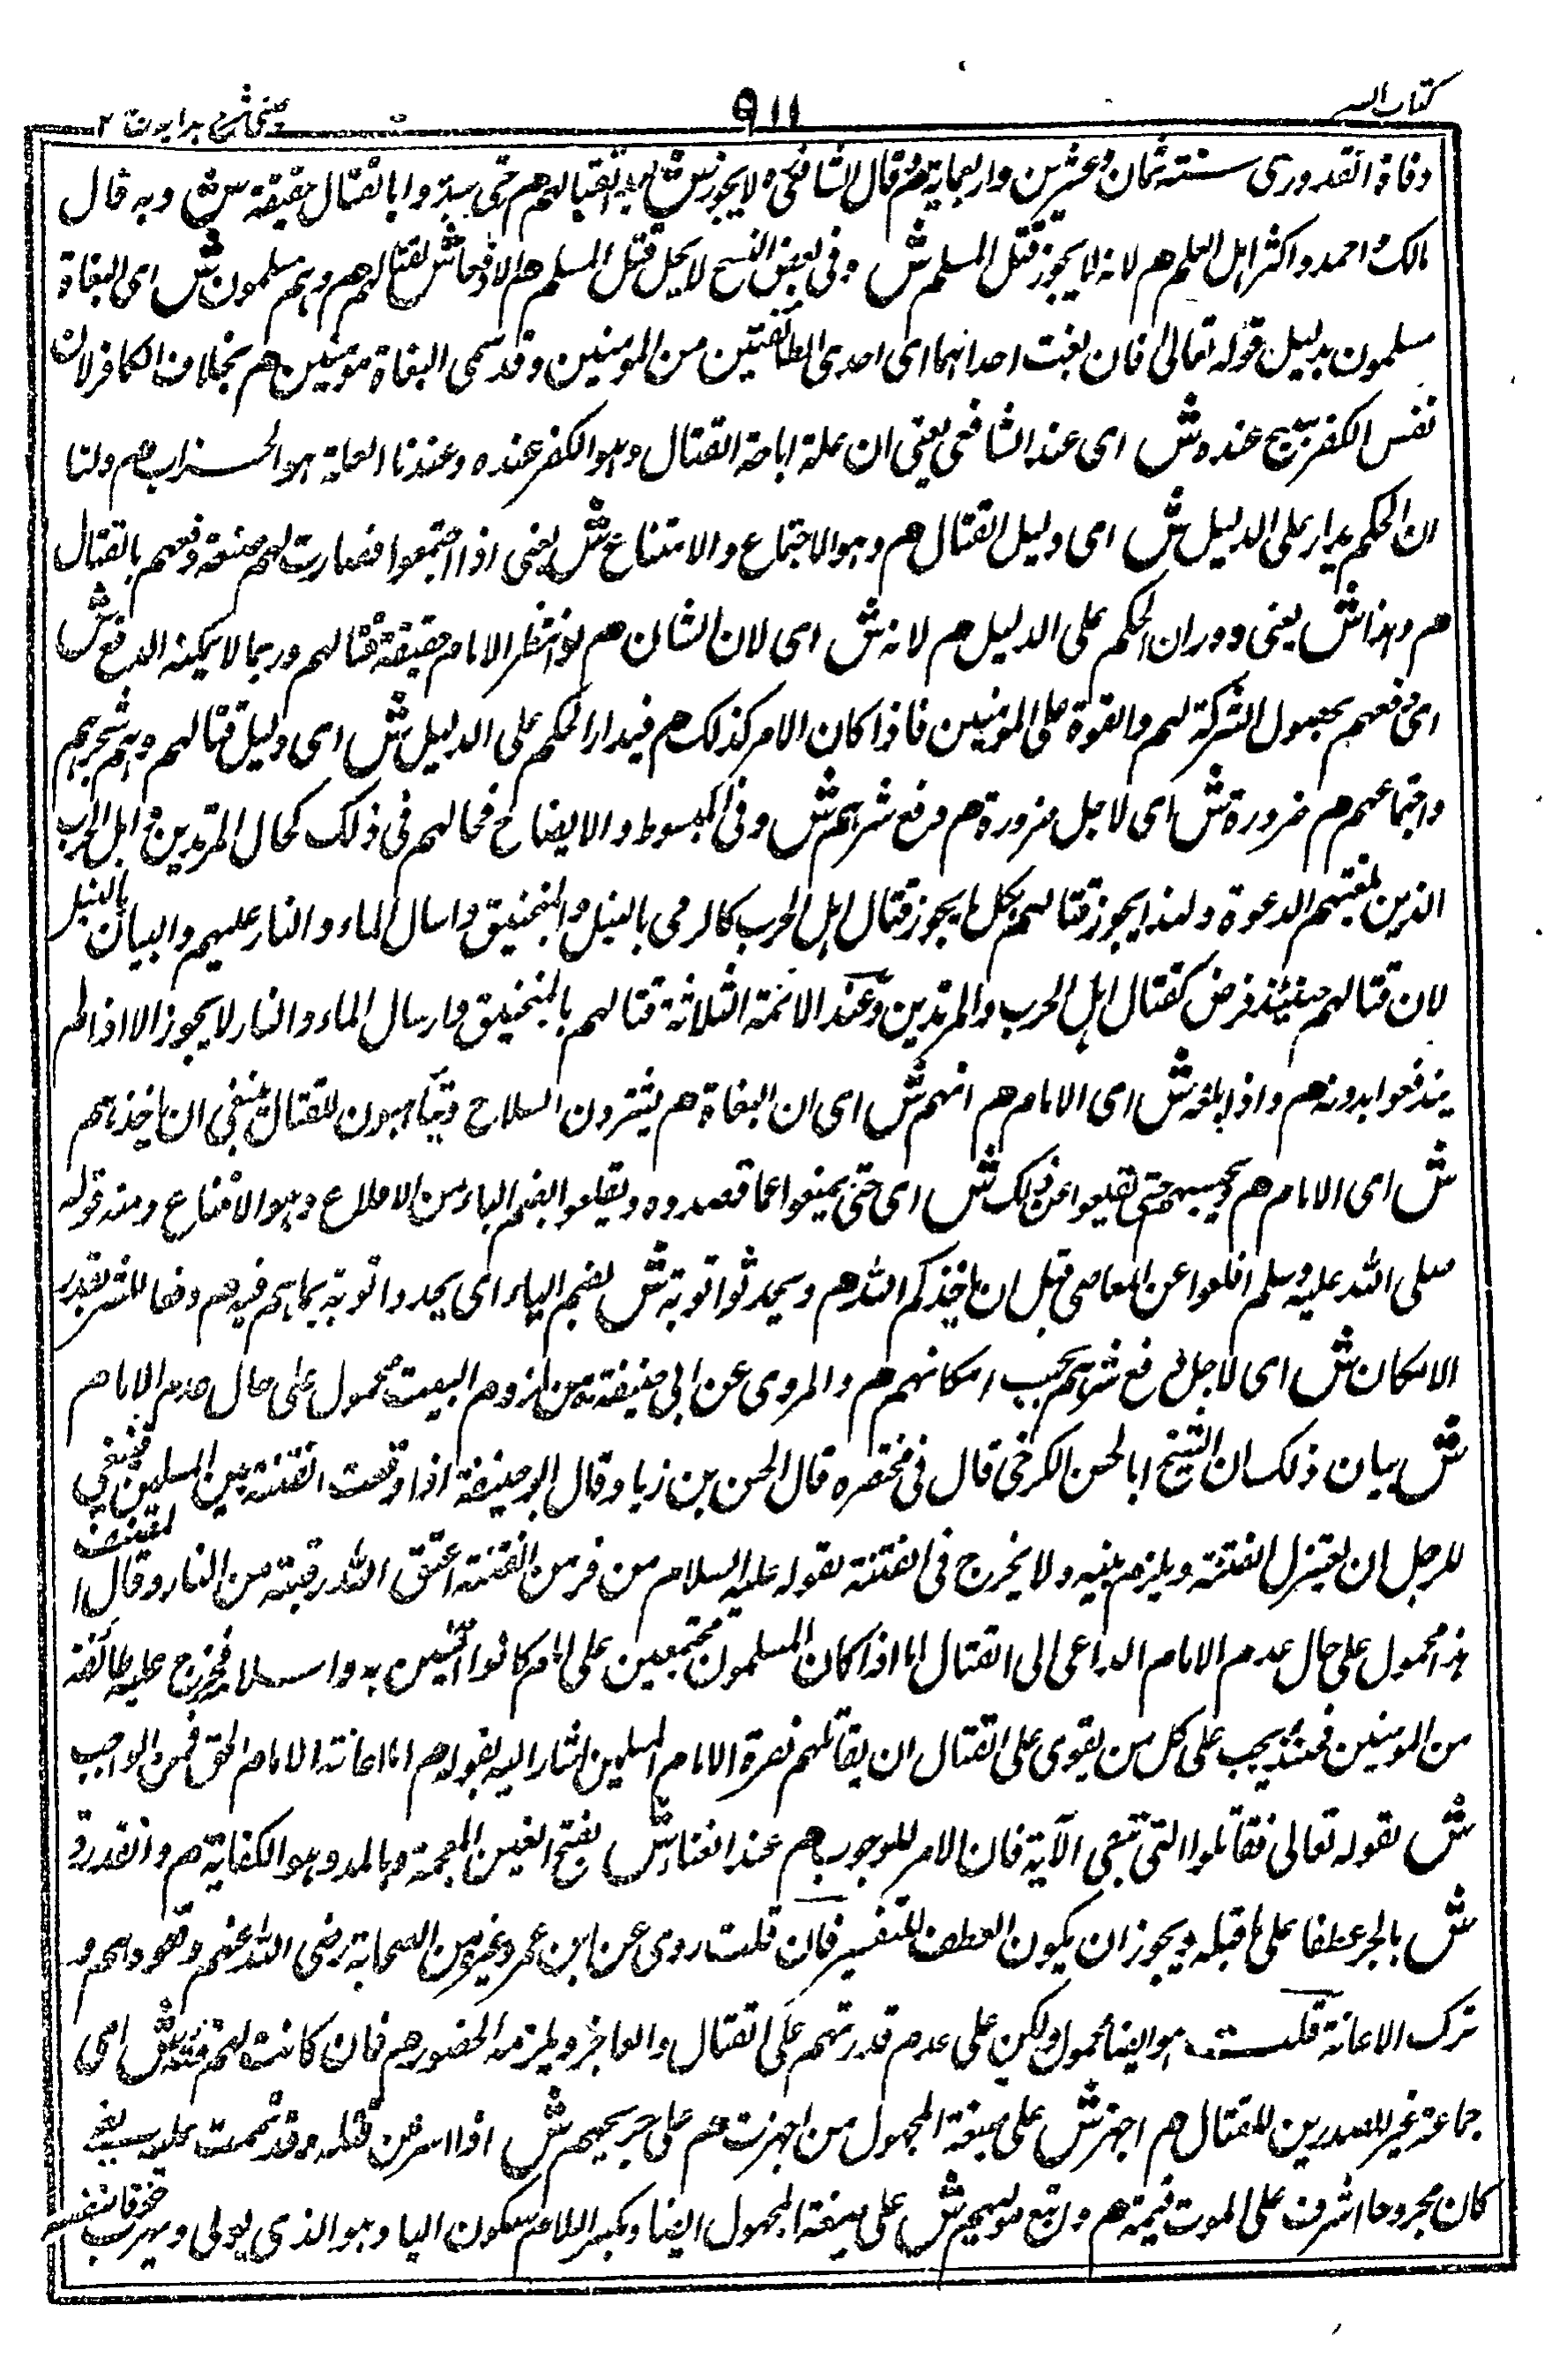 كتاب السير
٩١١
عينى شرح هدايه ج ٢
وفاة القدورى سنة ثمان وعشرين واربعماية هم وقال الشافعى ره لا يجوز ش اى قتالهم هم حتى يبدؤوا بالقتال حقيقة ش وبه قال
مالك و احمد واكثر اهل العلم هم لانه لا يجوز قتل المسلم ش وفى بعض النسخ لا يحل قتل المسلم هم الا دفعا ش لقتالهم هم وهم مسلمون ش اى البغاة
مسلمون بدليل قوله تعالى فان بغت احداهما اى احدى الطائفتين من المومنين وقد سمى البغاة مومنين هم بخلاف الكافر لان
نفس الكفر يبيح عنده ش اى عند الشافعى يعنى ان علة اباحة القتال وهو الكفر عنده وعندنا العلة هو الحراب هم ولنا
ان الحكم يدار على الدليل ش اى دليل القتال هم وهو الاجتماع والامتناع ش يعنى اذا اجتمعوا فصارت لهم منعة دفعهم بالقتال
هم وهذا ش يعنى دوران الحكم على الدليل هم لانه ش اى لان الشان هم لو انتظر الامام حقيقة قتالهم وربما لا يمكنه الدفع ش
اى دفعهم بحصول الشركة لهم والقوة على المومنين فاذا كان الامر كذلك هم فيدار الحكم على الدليل ش اى دليل قتالهم وهو تحيزهم
واجتماعهم هم ضرورة ش اى لاجل ضرورة هم دفع شرهم ش وفى المبسوط والايضاح فحالهم فى ذلك كحال المرتدين و اهل الحرب
الذين بلغتهم الدعوة ولهذا يجوز قتالهم بكل ما يجوز قتال اهل الحرب كالرمى بالنبل والمنجنيق وارسال الماء والنار عليهم والبيات بالليل
لان قتالهم حينئذ فرض كقتال اهل الحرب والمرتدين وعند الائمة الثلاثة قتالهم بالمنجنيق وارسال الماء والنار لا يجوز الا اذا لم
يندفعوا بدونه هم واذا بلغه ش اى الامام هم انهم ش اى ان البغاة هم يشترون السلاح ويتأهبون للقتال ينبغى ان ياخذهم
ش اى الامام هم ويحبسهم حتى يقلعوا عن ذلك ش اى حتى يمتنعوا عما قصدوه ويقلعوا بضم الياء من الاقلاع وهو الامتناع ومنه قوله
صلى الله عليه وسلم اقلعوا عن المعاصى قبل ان ياخذكم الله هم ويحدثوا توبة ش بضم الياء اى يجددوا توبة بما هم فيه هم دفعا للشر بقدر
الامكان ش اى لاجل دفع شرهم بحسب امكانهم هم والمروى عن ابى حنيفة ره من لزوم البيت محمول على حال عدم الامام
ش بيان ذلك ان الشيخ ابا الحسن الكرخى قال فى مختصره قال الحسن بن زياد وقال ابو حنيفة اذا وقعت الفتنة بين المسلمين فينبغى
للرجل ان يعتزل الفتنة ويلزم بيته ولا يخرج فى الفتنة لقوله عليه السلام من فر من الفتنة اعتق الله رقبته من النار وقال المصنف
هذا محمول على حال عدم الامام الداعى الى القتال اما اذا كان المسلمون مجتمعين على امام كانوا آمنين به والسبل آمنة فخرج عليه طائفة
من المومنين فحينئذ يجب على كل من يقوى على القتال ان يقاتلهم نصرة الامام المسلمين اشار اليه بقوله هم اما اعانة الامام الحق فمن الواجب
ش لقوله تعالى فقاتلوا التى تبغى الآية فان الامر للوجوب هم عند الغناء ش بفتح الغين المعجمة وبالمد وهو الكفاية هم والقدرة
ش بالجر عطفا على ما قبله ويجوز ان يكون العطف للتفسير فان قلت روى عن ابن عمر وغيره من الصحابة رضى الله عنهم وقعودهم و
ترك الاعانة قلت هو ايضا محمول ولكن على عدم قدرتهم على القتال والعاجز ولا يلزمه الحضور هم فان كانت لهم فئة ش اى
جماعة غير المصدرين للقتال هم اجهز ش على صيغة المجهول من اجهزت هم على جريحهم ش اذا اسرعت قتله وقد تممت عليه يعنى
كان مجروحا اشرف على الموت فيتمه هم واتبع موليهم ش على صيغة المجهول ايضا وبكسر اللام وسكون اليا وهو الذى يولى ويهرب خوفا لنفسه